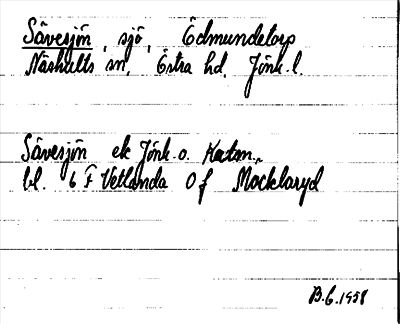 Sävesjön, sjö, Ödmundetorp
Näshults sn, Östra hd, Jönk. l.
Sävesjön ek Jönk. o. Kartan,
bl. 6 F Vetlanda 0 f Mocklaryd
B.G. 1958